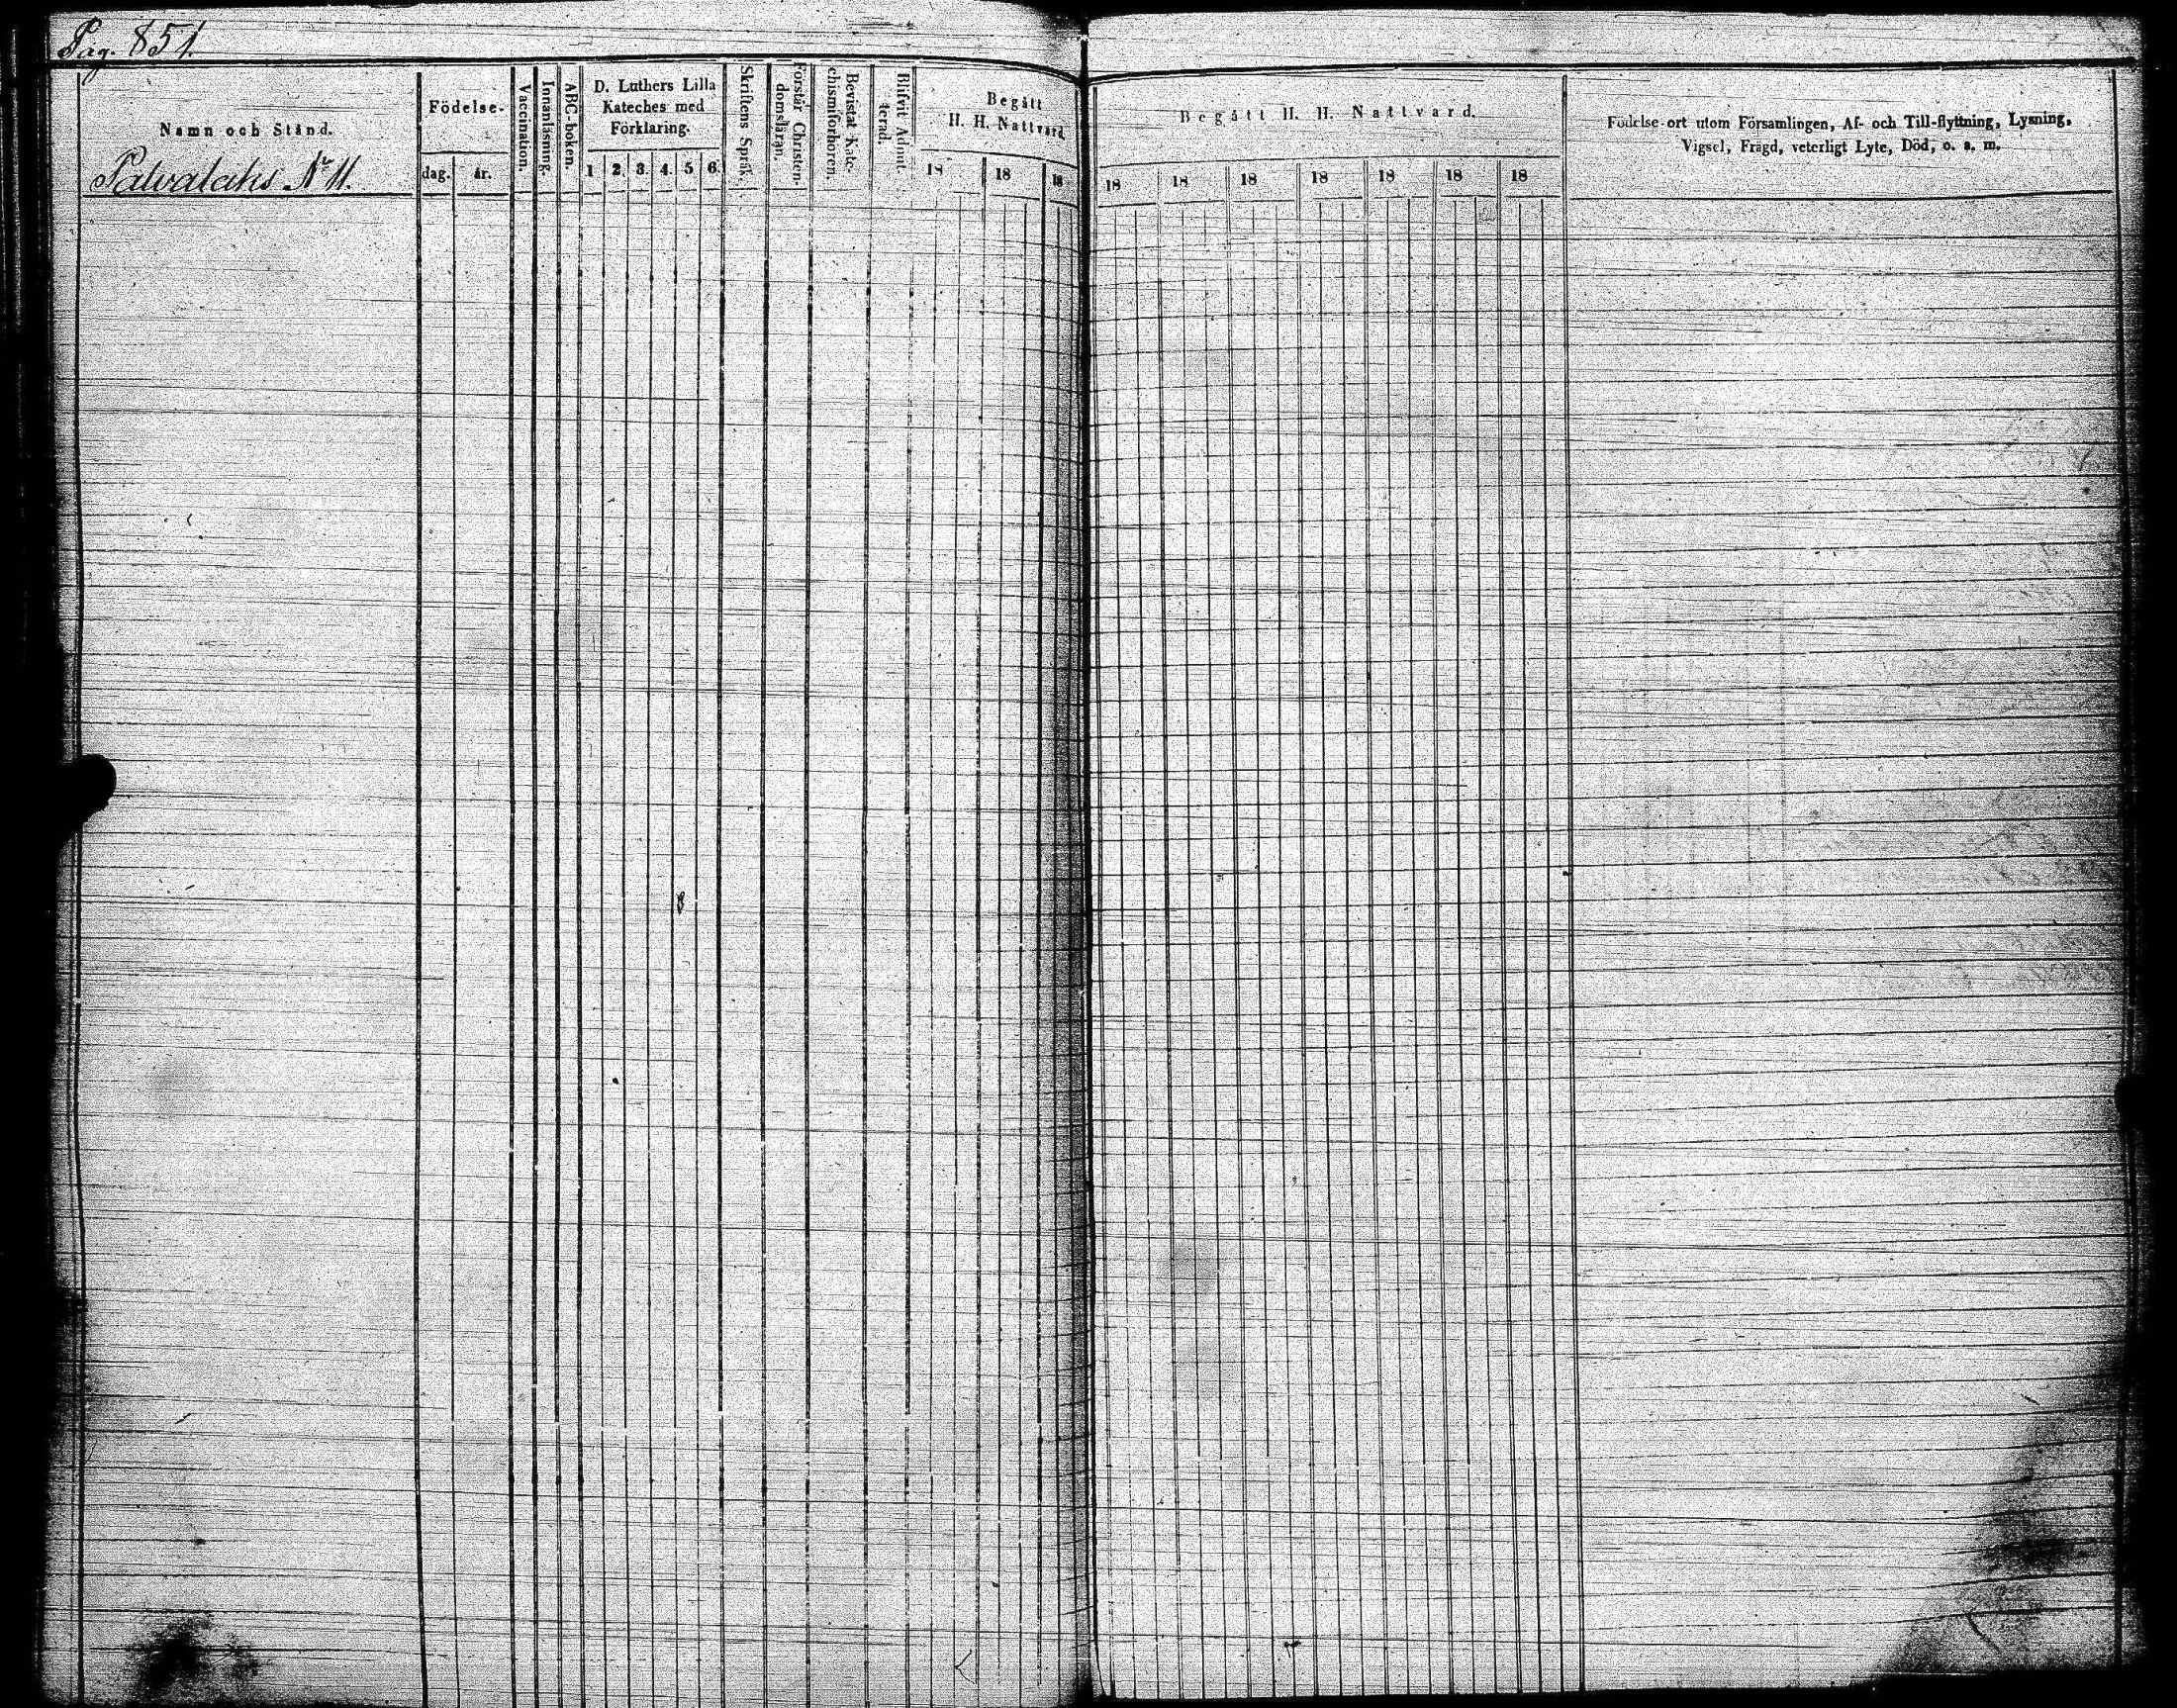 Pag. 851.
Namn och Stånd.
Palvalaks No 11.
Födelse-
dag. år.
Vaccination.
Innanläsning.
ABC-boken.
D. Luthers Lilla
Kateches med
Förklaring.
1 2. 3. 4. 5 6.
Skriftens Språk.
Förstår Christen-
domsläran.
Bevistat Kate-
chismiförhören.
Blifvit Admit-
terad.
Begått
H. H. Nattvard
18 18 18
Begått H. H. Nattvard.
18 18 18 18 18 18 18
Födelse-ort utom Församlingen, Af- och Till-flyttning, Lysning,
Vigsel, Frägd, veterligt Lyte, Död, o. s. m.